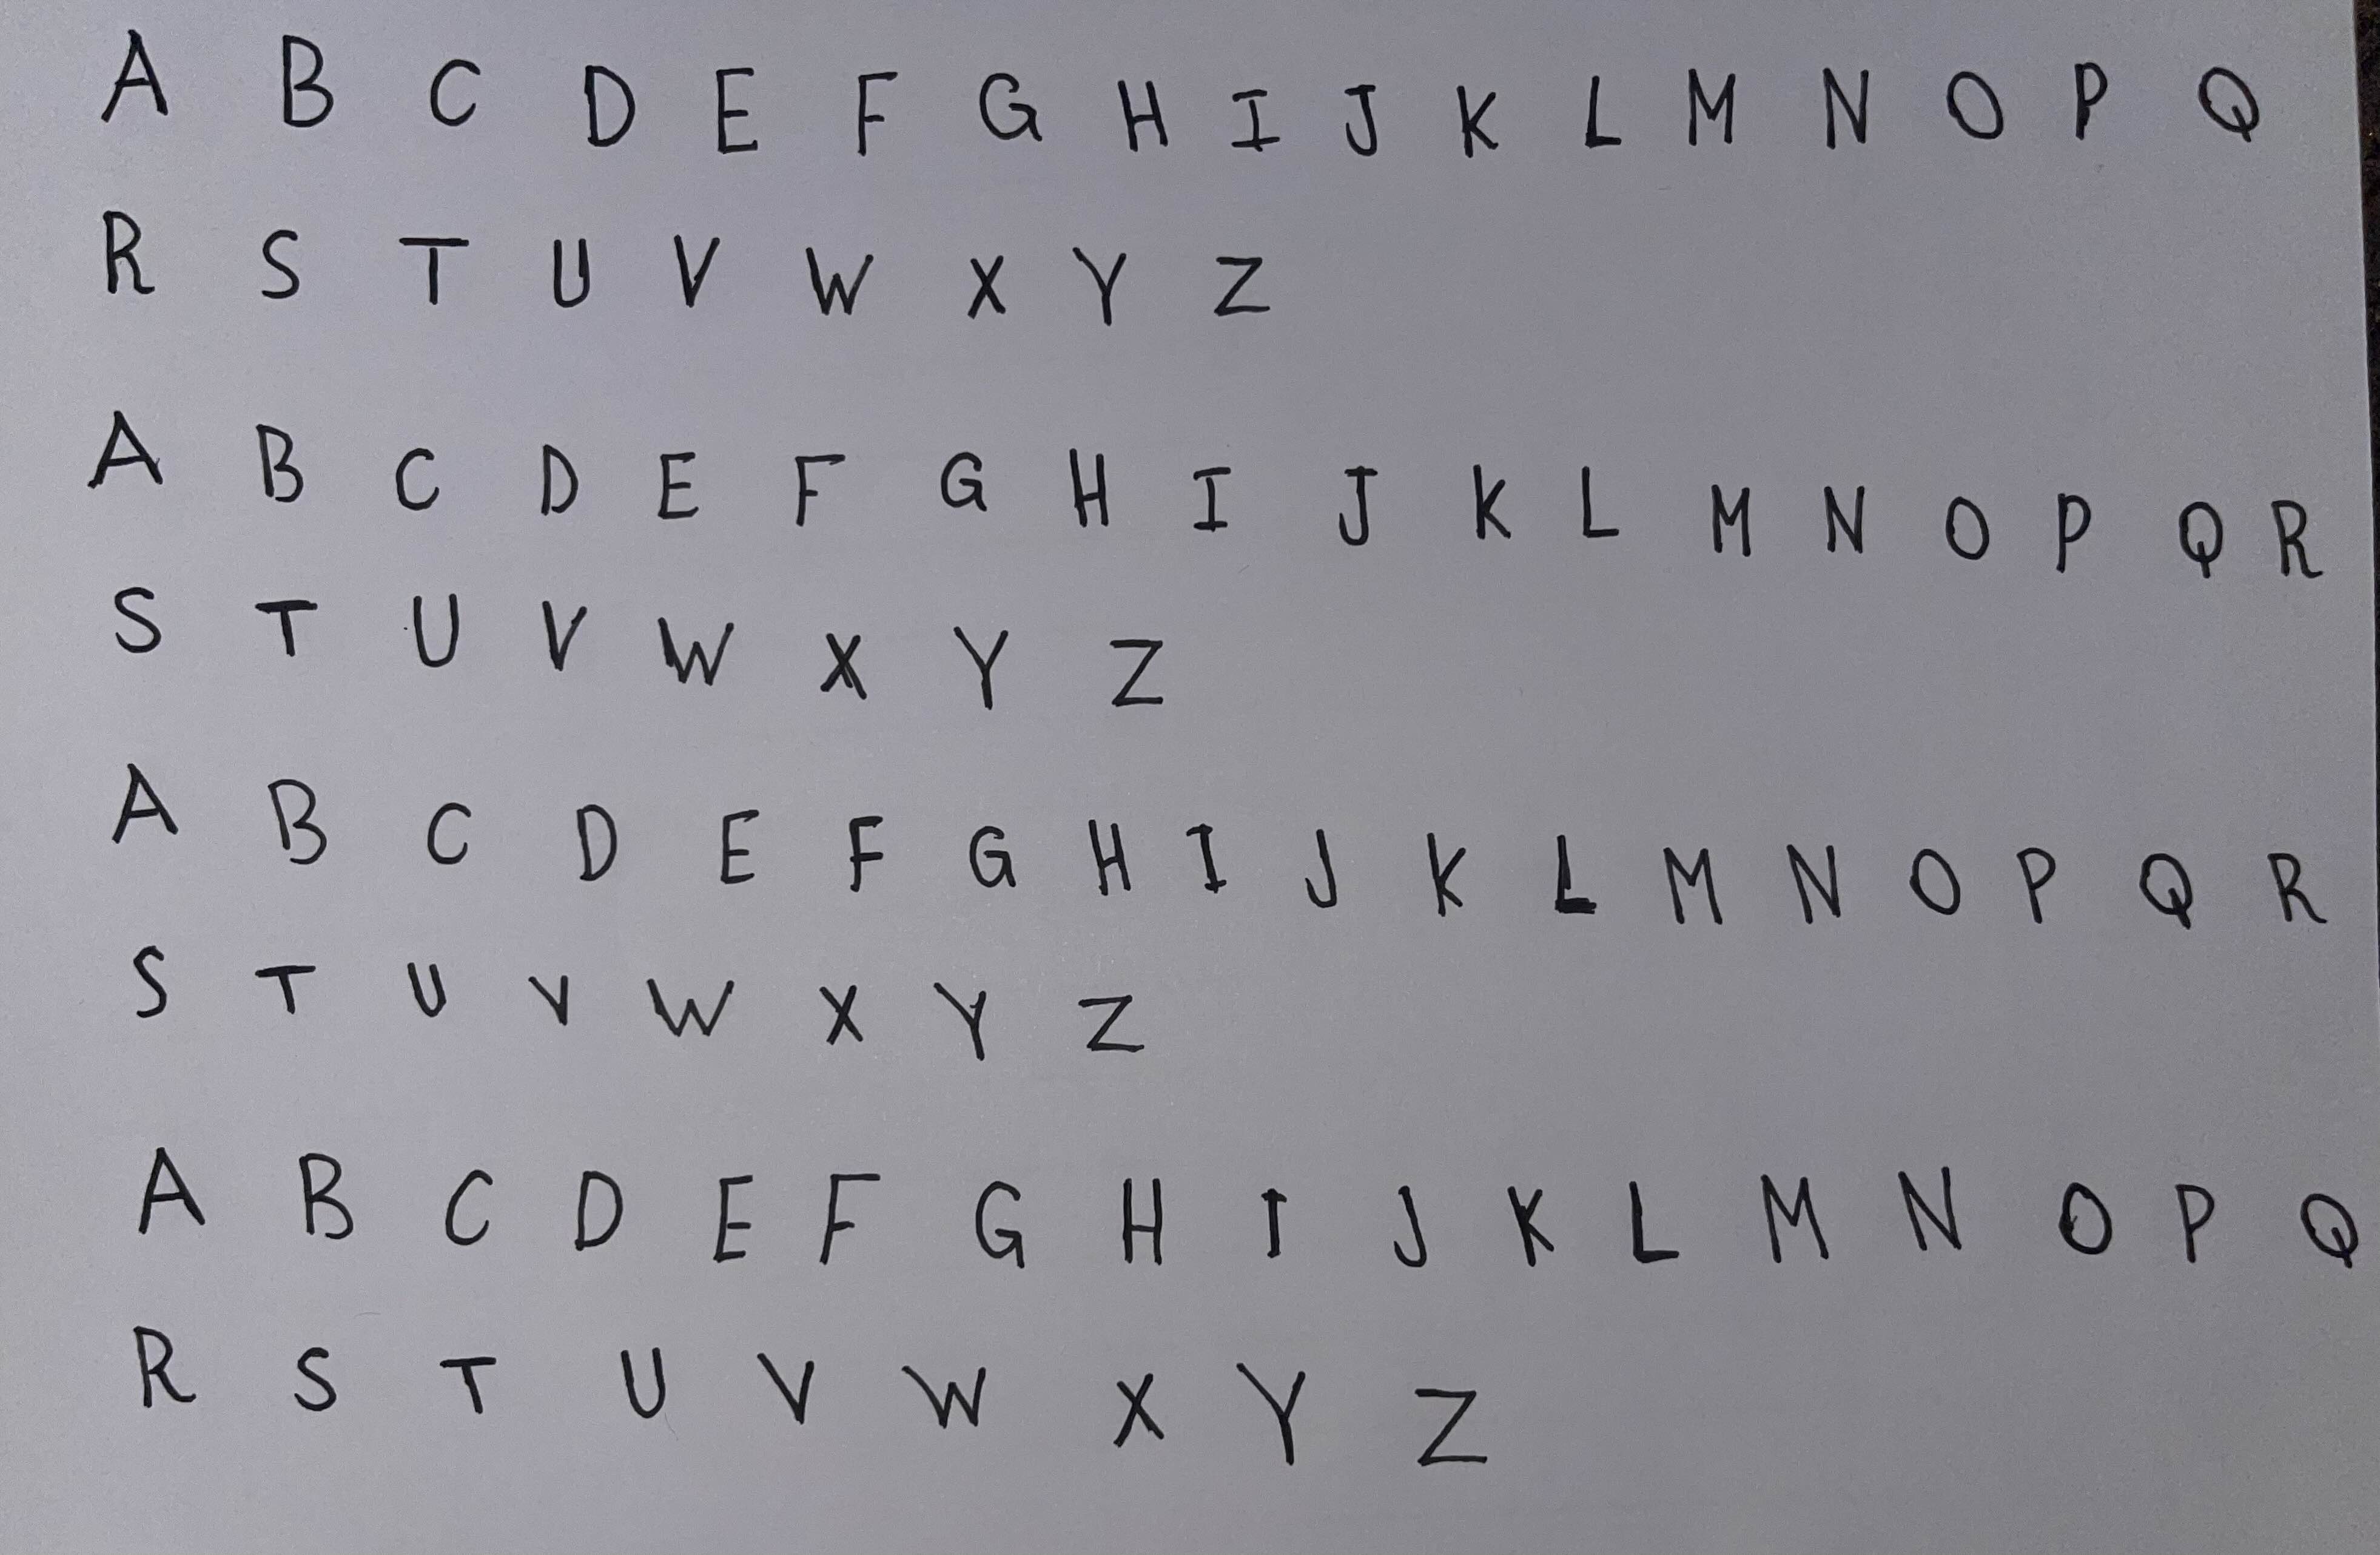 A B C D E F G H I J K L M N O P Q
R S T U V W X Y Z
A B C D E F G H I J K L M N O P Q R
S T U V W X Y Z
A B C D E F G H I J K L M N O P Q R
S T U V W X Y Z
A B C D E F G H I J K L M N O P Q
R S T U V W X Y Z